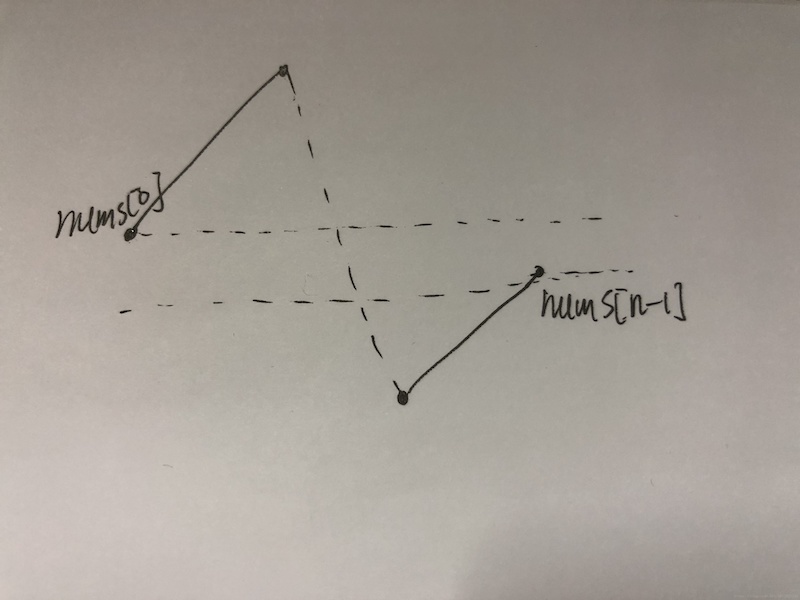 nums[0]
nums[n-1]